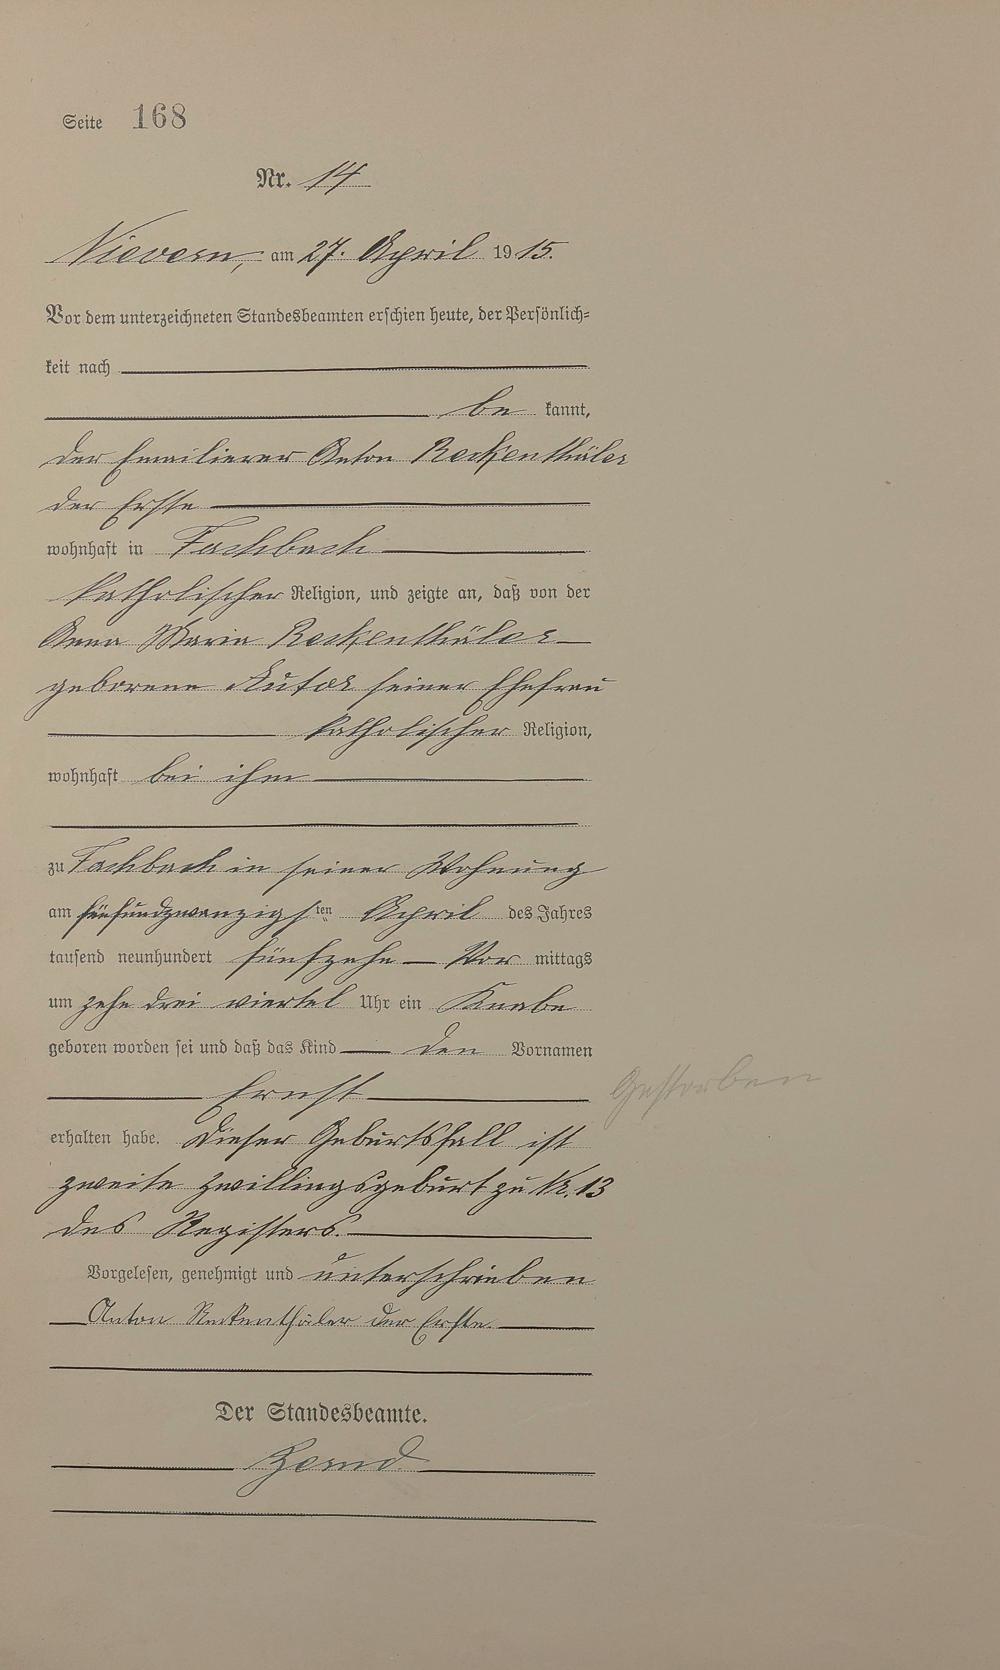 Seite 168
Nr. 14
Nievern, am 27. April 1915.
Vor dem unterzeichneten Standesbeamten erschien heute, der Persönlich-
keit nach
be kannt,
der Emailierer Anton Reckenthäler
der Erste
wohnhaft in Fachbach
katholischer Religion, und zeigte an, daß von der
Anna Maria Reckenthäler
geborene Kutor seiner Ehefrau
katholischer Religion,
wohnhaft bei ihm
zu Fachbach in seiner Wohnung
am fünfundzwanzigsten April des Jahres
tausend neunhundert fünfzehn Vor mittags
um zehn drei viertel Uhr ein Knabe
geboren worden sei und daß das Kind den Vornamen
Ernst
Gestorben
erhalten habe. Dieser Geburtsfall ist
zweite Zwillingsgeburt zu Nr. 13
des Registers.
Vorgelesen, genehmigt und unterschrieben
Anton Reckenthäler der Erste.
Der Standesbeamte.